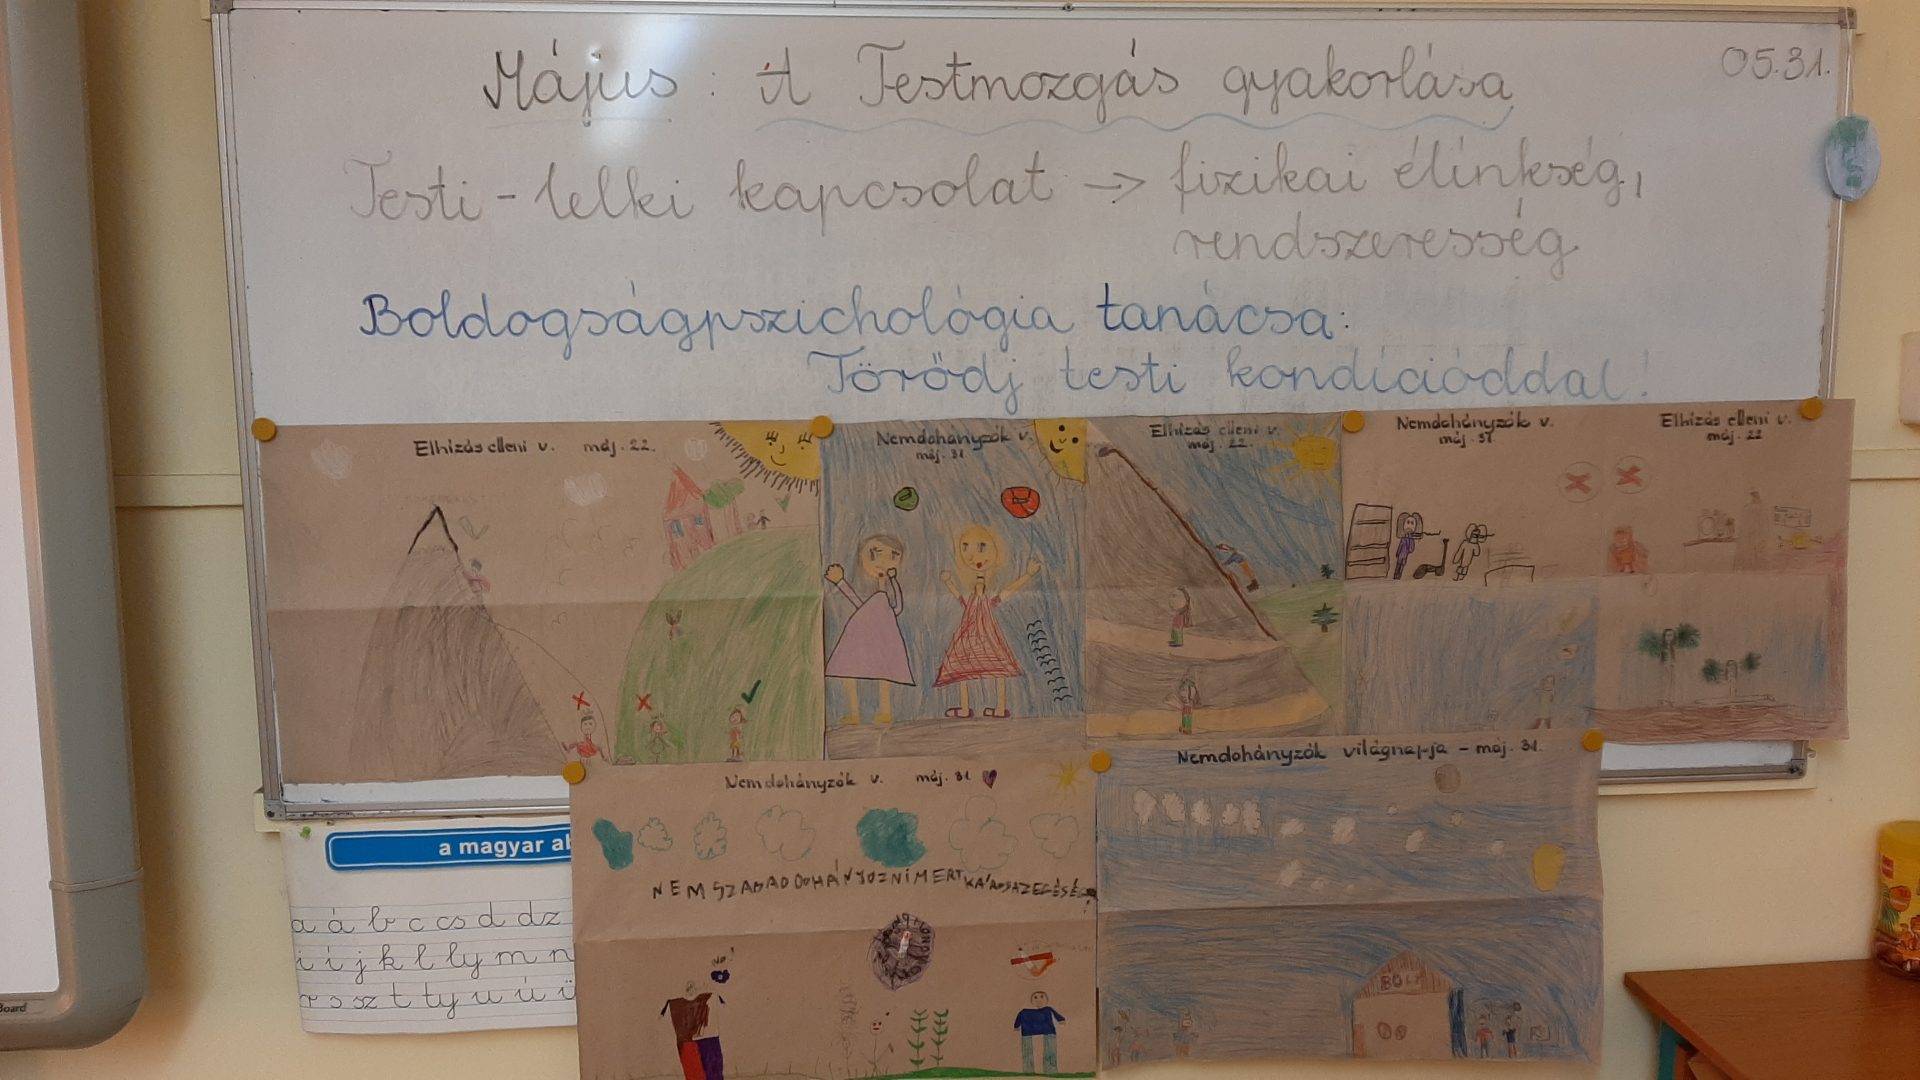 Május: A Testmozgás gyakorlása
05.31.
Testi-lelki kapcsolat → fizikai élínkség,
rendszeresség
Boldogságpszichológia tanácsa:
Törődj testi kondícióddal!
Elhízás elleni v. máj. 22.
Nemdohányzók v.
máj. 31
Elhízás elleni v.
máj. 22.
Nemdohányzók v.
máj. 31
Elhízás elleni v.
máj. 22
Nemdohányzók v. máj. 31
NEM SZABAD DOHÁNYOZNI MERT
Nemdohányzók világnapja - máj. 31.
BOLT
a magyar ab
a á b c cs d dz
i í j k l ly m n
r s sz t ty u ú ü
Board